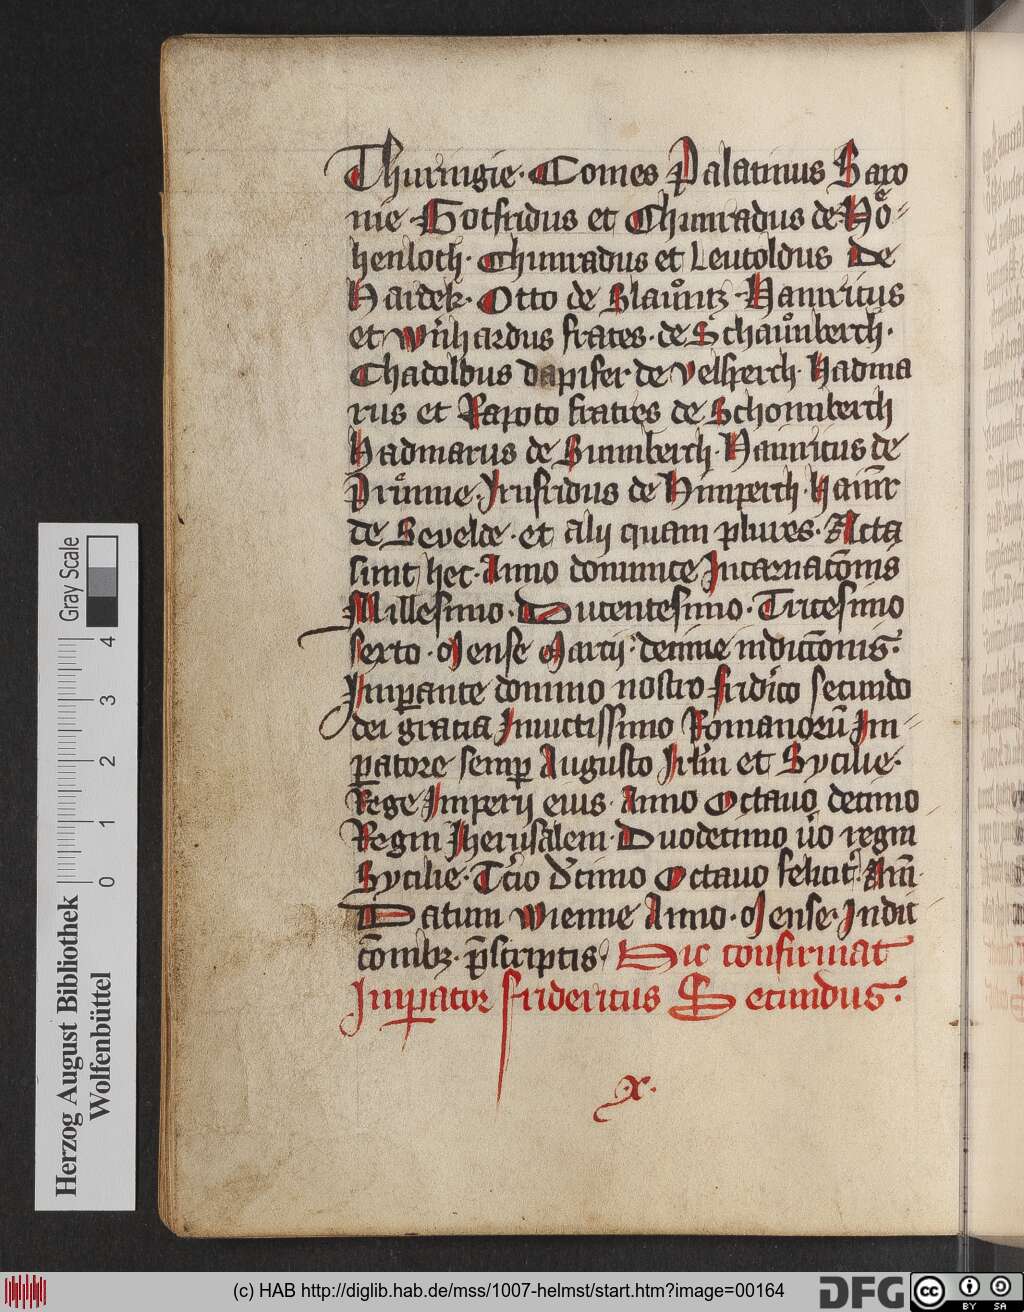 Thuringie · Comes Palatinus Saxo
nie · Gotfridus et Chunradus de Hoͤ-
henloch · Chunradus et Leutoldus De
Hardek · Otto de Slauͦnitz · Hainricus
et Wernhardus frates · de Schauͦnberch ·
Chadolbus dapifer de velsperch · Hadma
rus et Rapoto fratres de Schonnberch
Hadmarus de Sunnberch · Hainricus de
Irnfridus de Himperch · Hainr̄
de Sevelde · et alij quam plures · Acta
sunt hec · Anno dominice Incarnac̄onis
Millesimo · Ducentesimo · Tricesimo
sexto · Mense Marcij · decime indicc̄onis ·
Imꝑante domino nostro frid'ico secundo
dei gratia Inuictissimo Romanorū Im-
ꝑatore semꝑ Augusto Irl'm et Sycilie ·
Rege Imperij eius · Anno Octauo decimo
Regni Jherusalem · Duodecimo u'o regni
Sycilie · T'cio d'cimo Octauo felicit' · Am̄
Datum wienne Anno · Mense · Indic
c̄onibꝫ · p̄scriptis · Hic confirmat
Imꝑator fridericus Secundus ·
· x ·
Herzog August Bibliothek
Wolfenbüttel
0 1 2 3 4
Gray Scale
(c) HAB http://diglib.hab.de/mss/1007-helmst/start.htm?image=00164
DFG
cc
BY SA